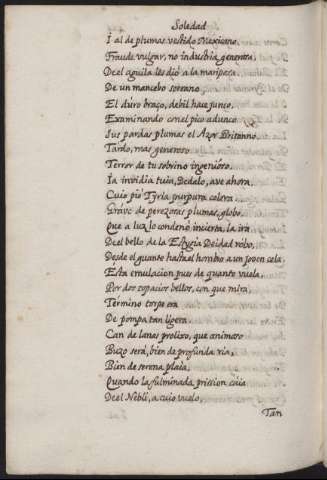 Soledad
I al de plumas vestido Mexicano.
Fraude vulgar, no industria generosa
Deel aguila les dió a la mariposa.
De un mancebo sereno
El duro braço, debil haze junco,
Examinando con el pico adunco
Sus pardas plumas el Azor Britanno,
Tardo, mas generoso
Terror de tu sobrino ingenioso,
Ia invidia tuia, Dedalo, ave ahora,
Cuio pie Tyria purpura colora.
Grave de perezosas plumas, globo,
Que a luz lo condenó incierta, la ira
Deel bello de la Estygia Deidad robo,
Desde el guante hasta el hombro a un joven cela.
Esta emulacion pues de quanto vuela,
Por dos topacios bellos, con que mira,
Termino torpe era
De pompa tan ligera.
Can de lanas prolixo, que animoso
Buzo será, bien de profunda ria,
Bien de serena plaia,
Quando la fulminada prission caia
Deel Neblí, a cuio vuelo,
Tan